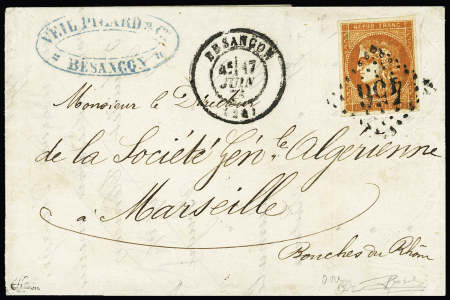 VEIL PICARD & Cie
BESANÇON
BESANÇON
17
JUIN
71
(24)
REPUB FRANC
Monsieur le Directeur
de la Société Gén.le Algerienne
à Marseille
Bouches du Rhône